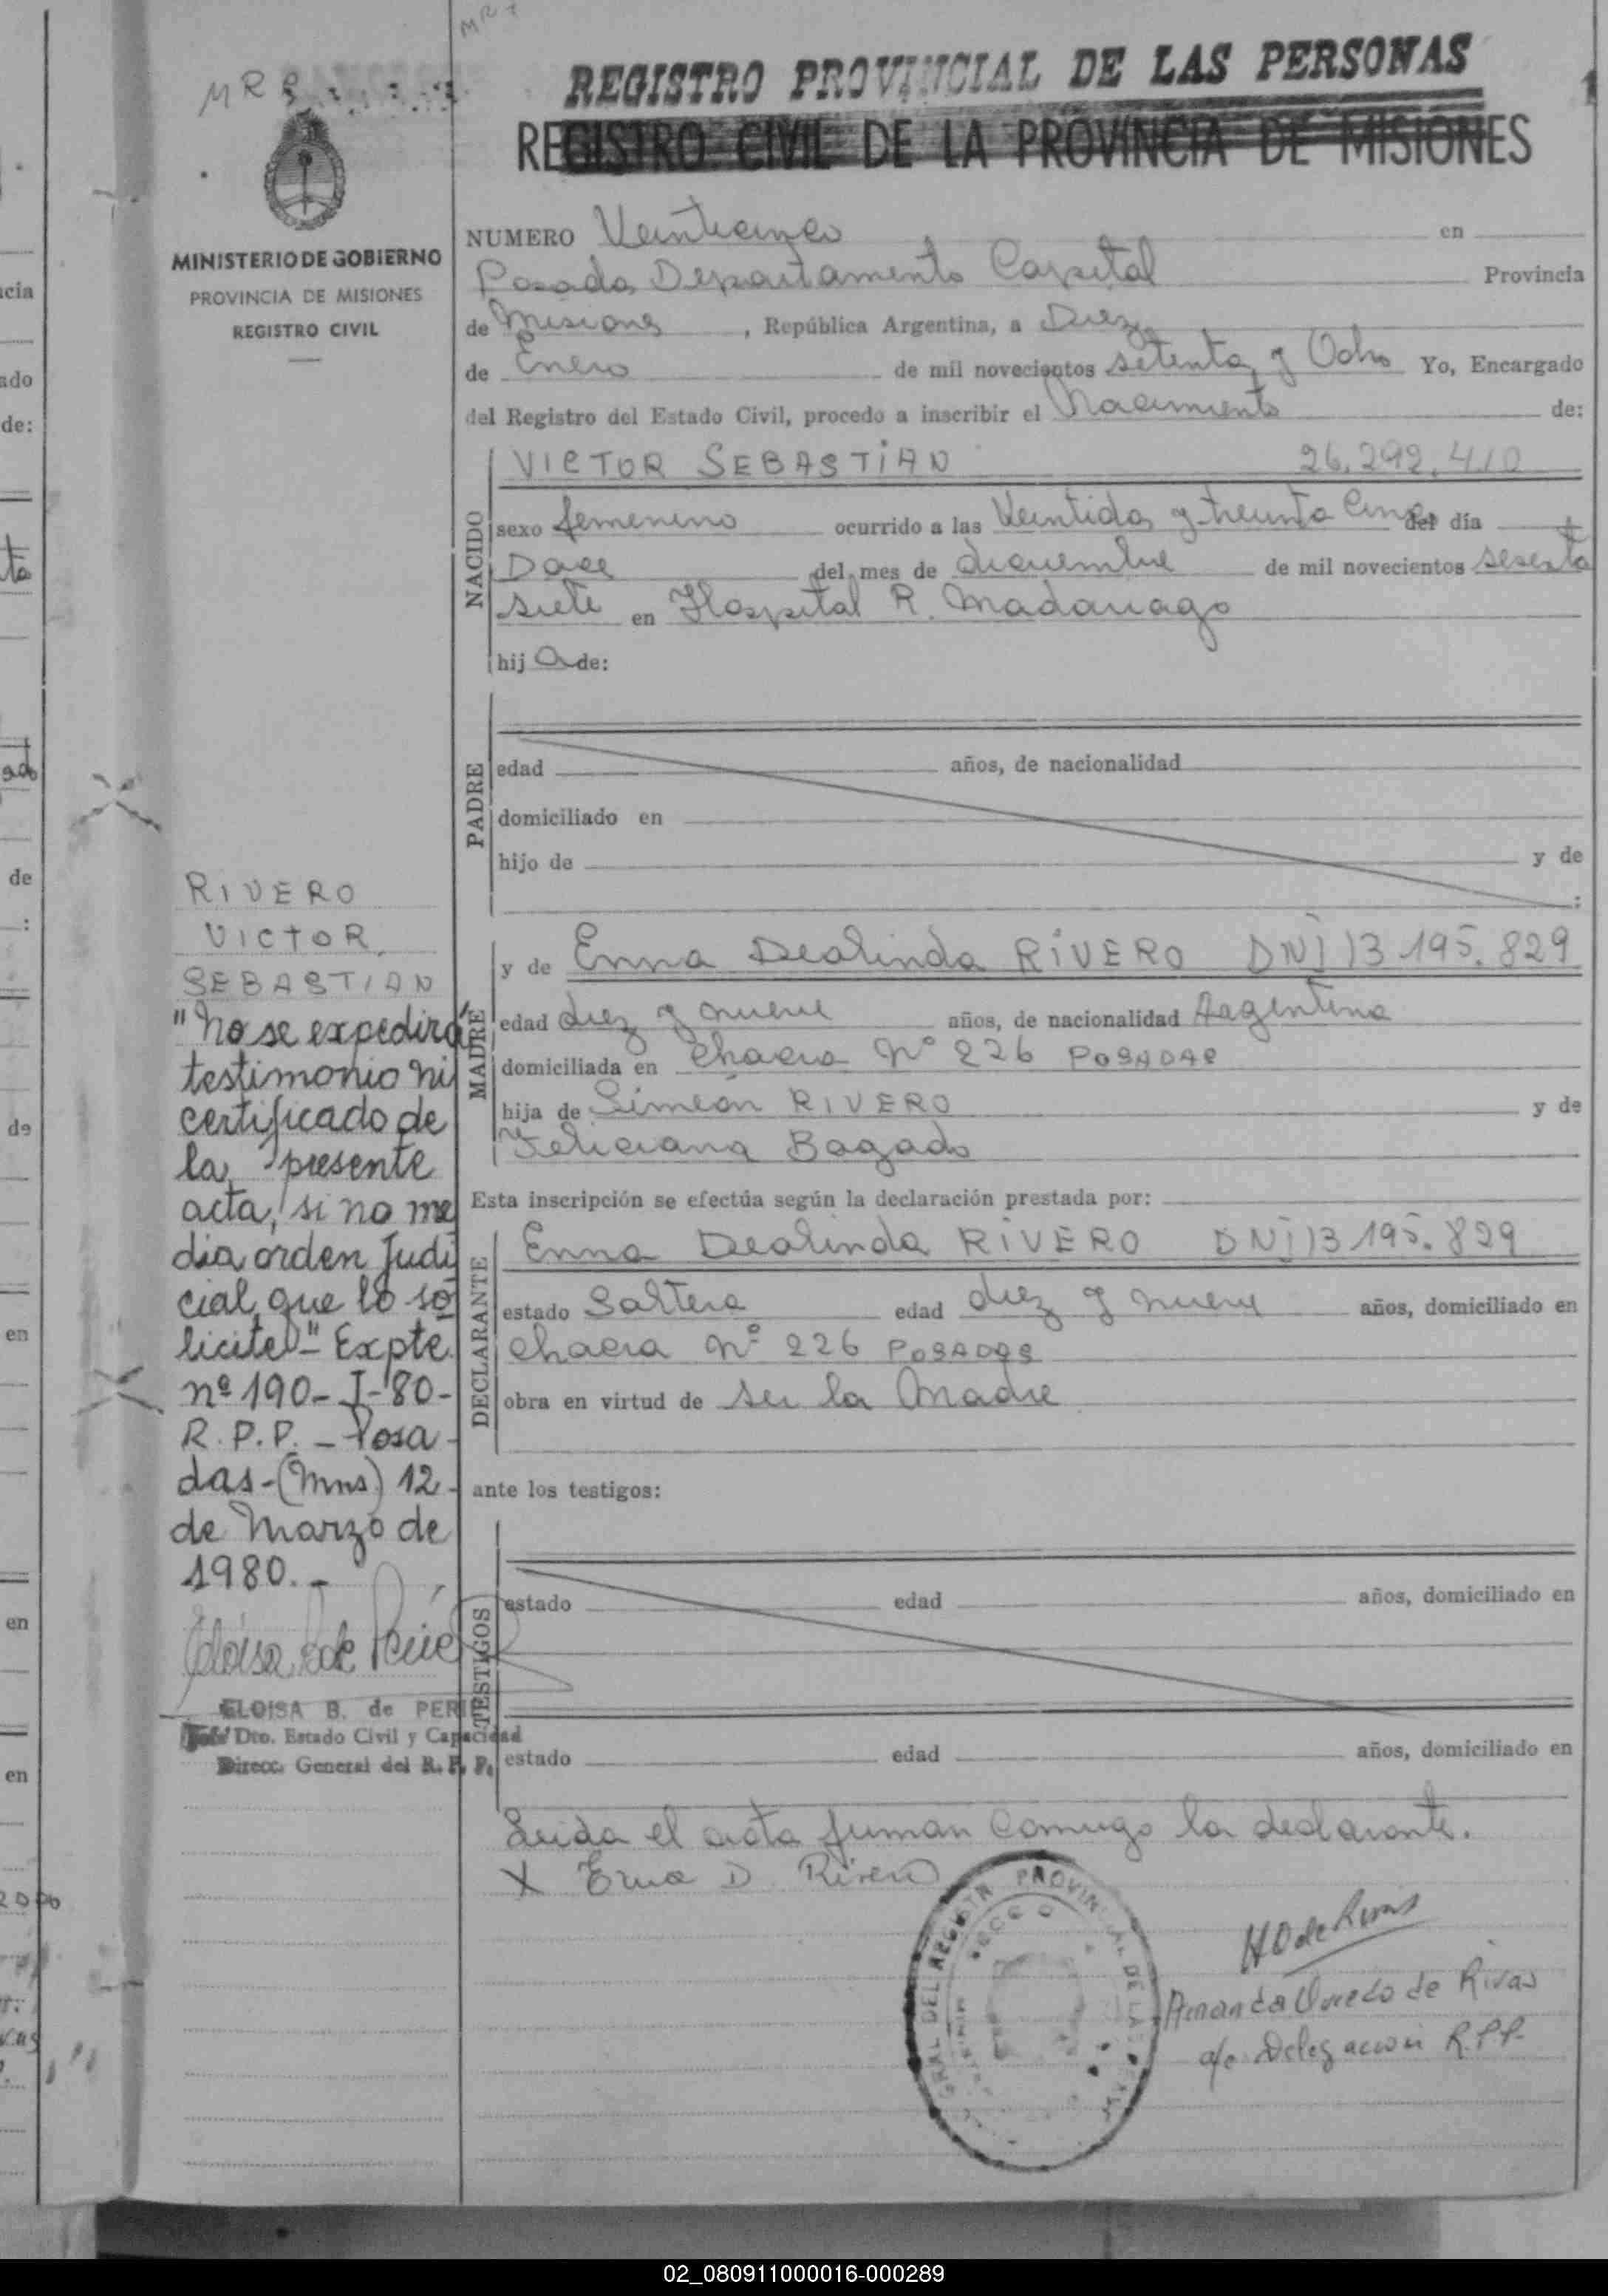 MRR
REGISTRO PROVINCIAL DE LAS PERSONAS
REGISTRO CIVIL DE LA PROVINCIA DE MISIONES
MINISTERIO DE GOBIERNO
PROVINCIA DE MISIONES
REGISTRO CIVIL
NUMERO Veinticinco en
Posadas Departamento Capital Provincia
de Misiones, República Argentina, a Diez
de Enero de mil novecientos setenta y Ocho Yo, Encargado
del Registro del Estado Civil, procedo a inscribir el Nacimiento de:
NACIDO
VICTOR SEBASTIAN 26.292.410
sexo femenino ocurrido a las Veintidos y treinta Cinco del día
Doce del mes de diciembre de mil novecientos sesenta
siete en Hospital R. Madariaga
hij a de:
PADRE
edad años, de nacionalidad
domiciliado en
hijo de y de
:
MADRE
y de Enna Dealinda RIVERO DNI 13.195.829
edad diez y nueve años, de nacionalidad Argentina
domiciliada en Chacra Nº 226 POSADAS
hija de Simeón RIVERO y de
Feliciana Bogado
Esta inscripción se efectúa según la declaración prestada por:
DECLARANTE
Enna Dealinda RIVERO DNI 13.195.829
estado Soltera edad diez y nueve años, domiciliado en
Chacra Nº 226 POSADAS
obra en virtud de ser la Madre
ante los testigos:
TESTIGOS
estado edad años, domiciliado en
estado edad años, domiciliado en
Leida el acta firman Conmigo la declarante.
X Erna D. Rivero
HO de Rivas
Amanda Oviedo de Rivas
a/c Delegación R.P.P.
RIVERO
VICTOR
SEBASTIAN
"No se expedirá
testimonio ni
certificado de
la presente
acta, si no me
dia orden Judi
cial que lo so
licite"- Expte.
nº 190-I-80-
R.P.P. - Posa
das-(Mns) 12-
de Marzo de
1980.-
ELOISA B. de PERIE
Jefe Dto. Estado Civil y Capacidad
Direcc. General del R. P. P.
02_080911000016-000289